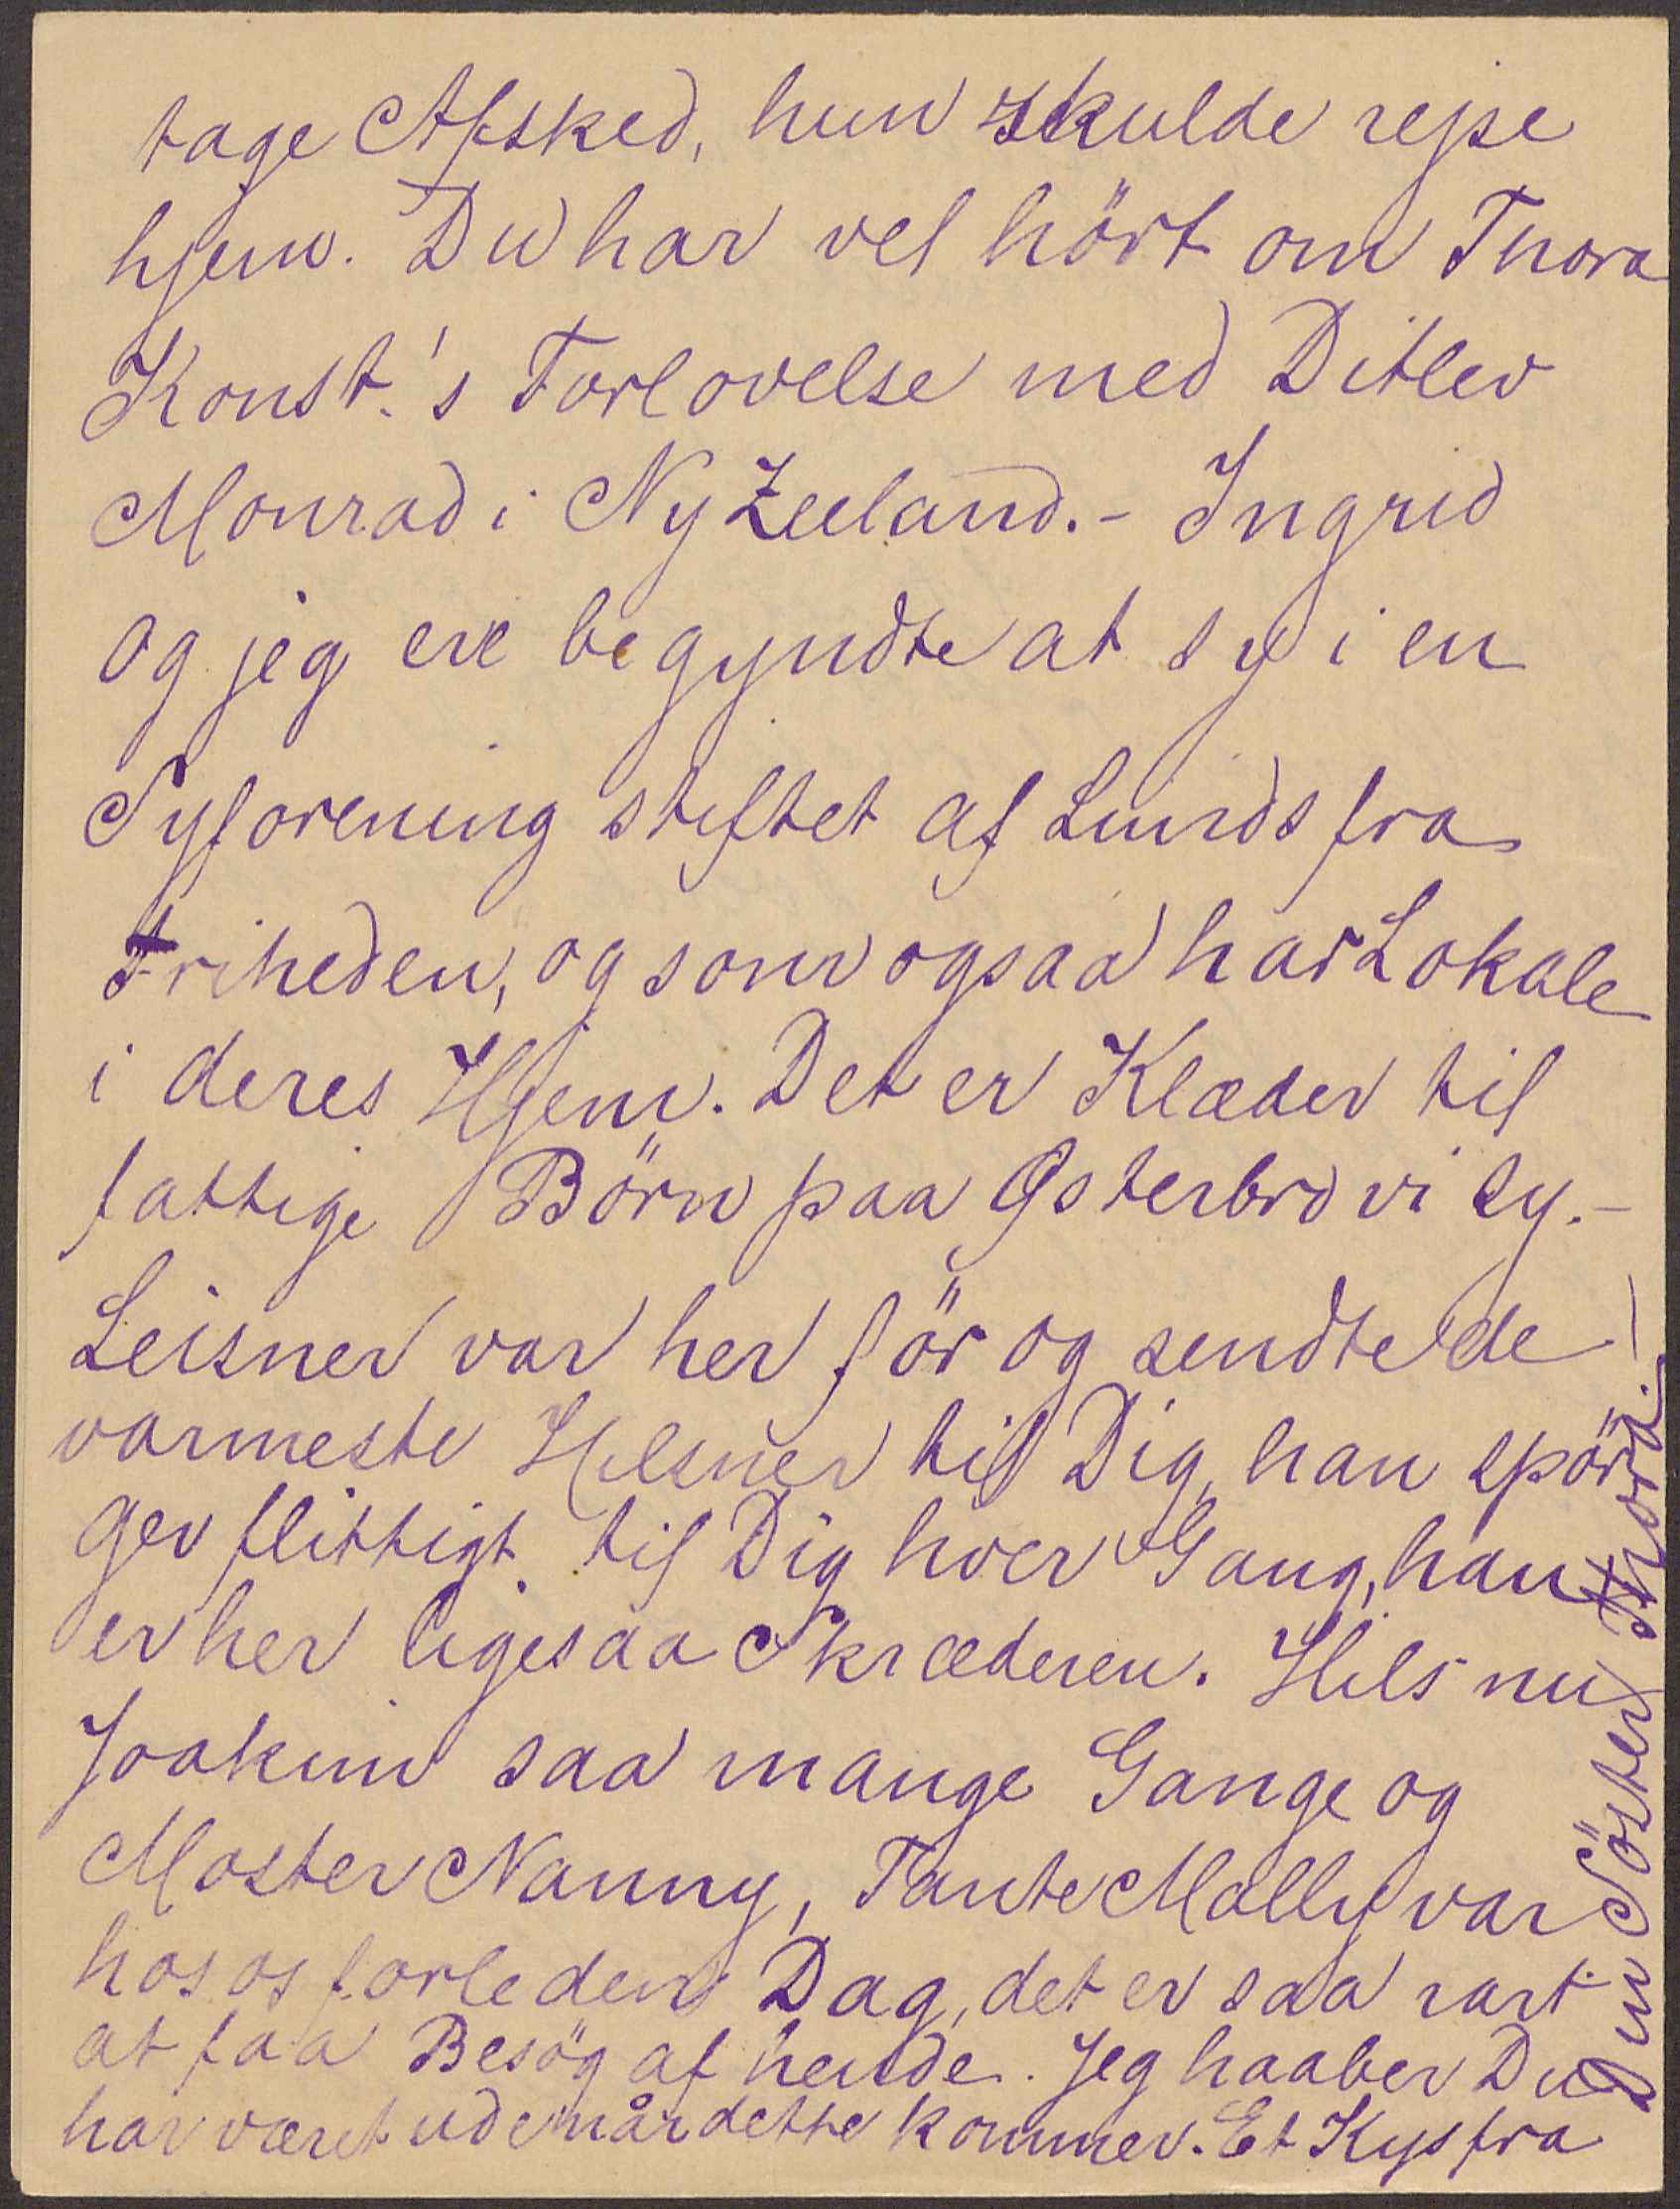 tage Afsked, hun skulde rejse
hjem. Du har vel hört om Thora
Konst.'s Forlovelse med Ditlev
Monrad i Ny Zeeland. - Ingrid
og jeg ere begyndte at sy i en
Syforening stiftet af Lunds fra
Friheden, og som ogsaa har Lokale
i deres Hjem. Det er Klæder til
fattige Börn paa Østerbro vi sy. -
Leisner var her för og sendte de
varmeste Hilsner til Dig, han spör
ger flittigt til Dig hver Gang, han
er her ligesaa Skræderen. Hils nu
Joakim saa mange Gange og
Moster Nanny, Tante Molly var
hos os forleden Dag, det er saa rart
at faa Besög af hende. Jeg haaber Du
har været ude når dette kommer. Et Kys fra
Din Söster Thora. -